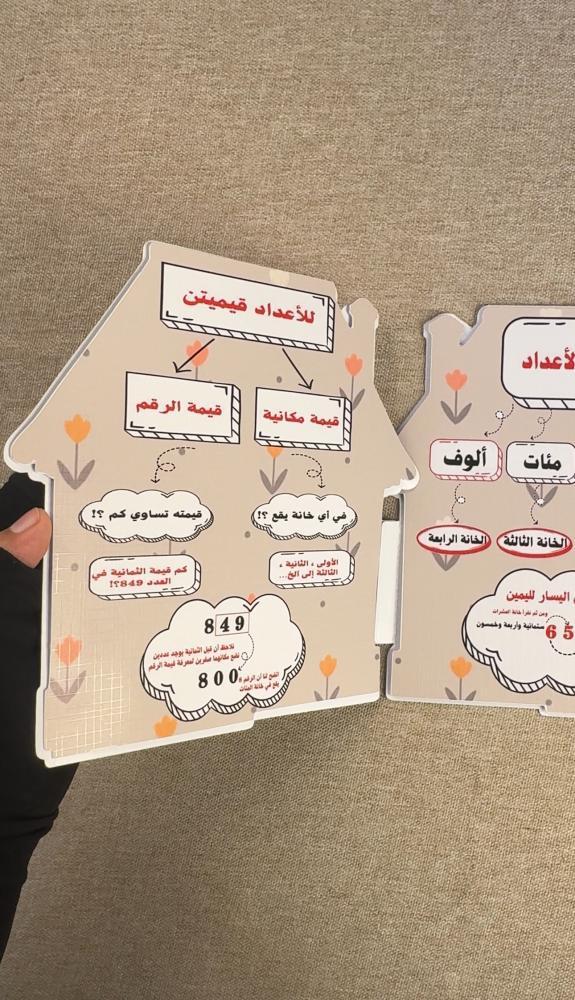 للأعداد قيميتن
قيمة مكانية
قيمة الرقم
في أي خانة يقع ؟!
قيمته تساوي كم ؟!
الأولى ، الثانية ،
الثالثة إلى الخ...
كم قيمة الثمانية في
العدد 849؟!
849
نلاحظ أن قبل الثمانية يوجد عددين
نضع مكانهما صفرين لمعرفة قيمة الرقم
800
اتضح لنا أن الرقم 8
يقع في خانة المئات
لأعداد
مئات
ألوف
الخانة الثالثة
الخانة الرابعة
اليسار لليمين
ومن ثم نقرأ خانة العشرات
65
ستمائية وأربعة وخمسون